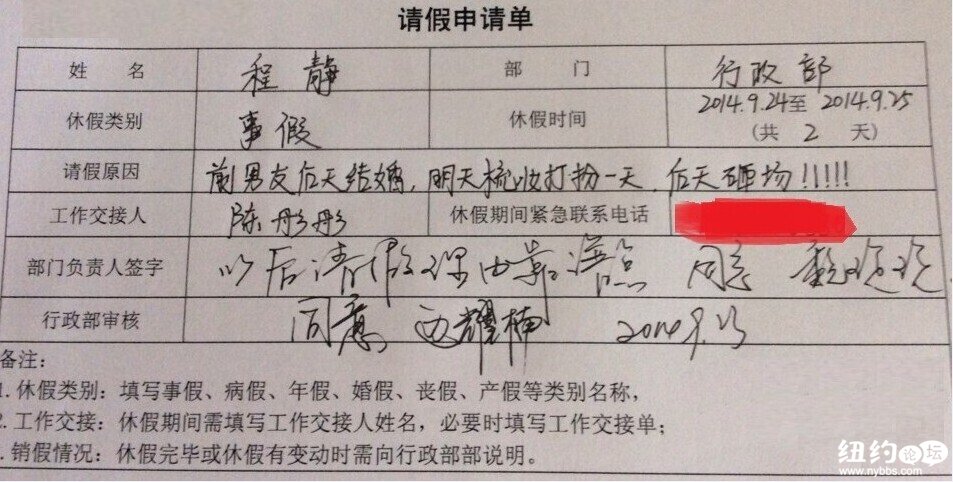 请假申请单
姓 名 程静 部 门 行政部
休假类别 事假 休假时间 2014.9.24至2014.9.25
(共 2 天)
请假原因 前男友后天结婚,明天梳妆打扮一天,后天砸场!!!!!
工作交接人 陈彤彤 休假期间紧急联系电话
部门负责人签字 以后请假理由靠谱点 同意
行政部审核 同意 耀楠 2014.9.23
备注:
1.休假类别:填写事假、病假、年假、婚假、丧假、产假等类别名称,
2.工作交接:休假期间需填写工作交接人姓名,必要时填写工作交接单;
.销假情况:休假完毕或休假有变动时需向行政部部说明。
纽约论坛
www.nybbs.com